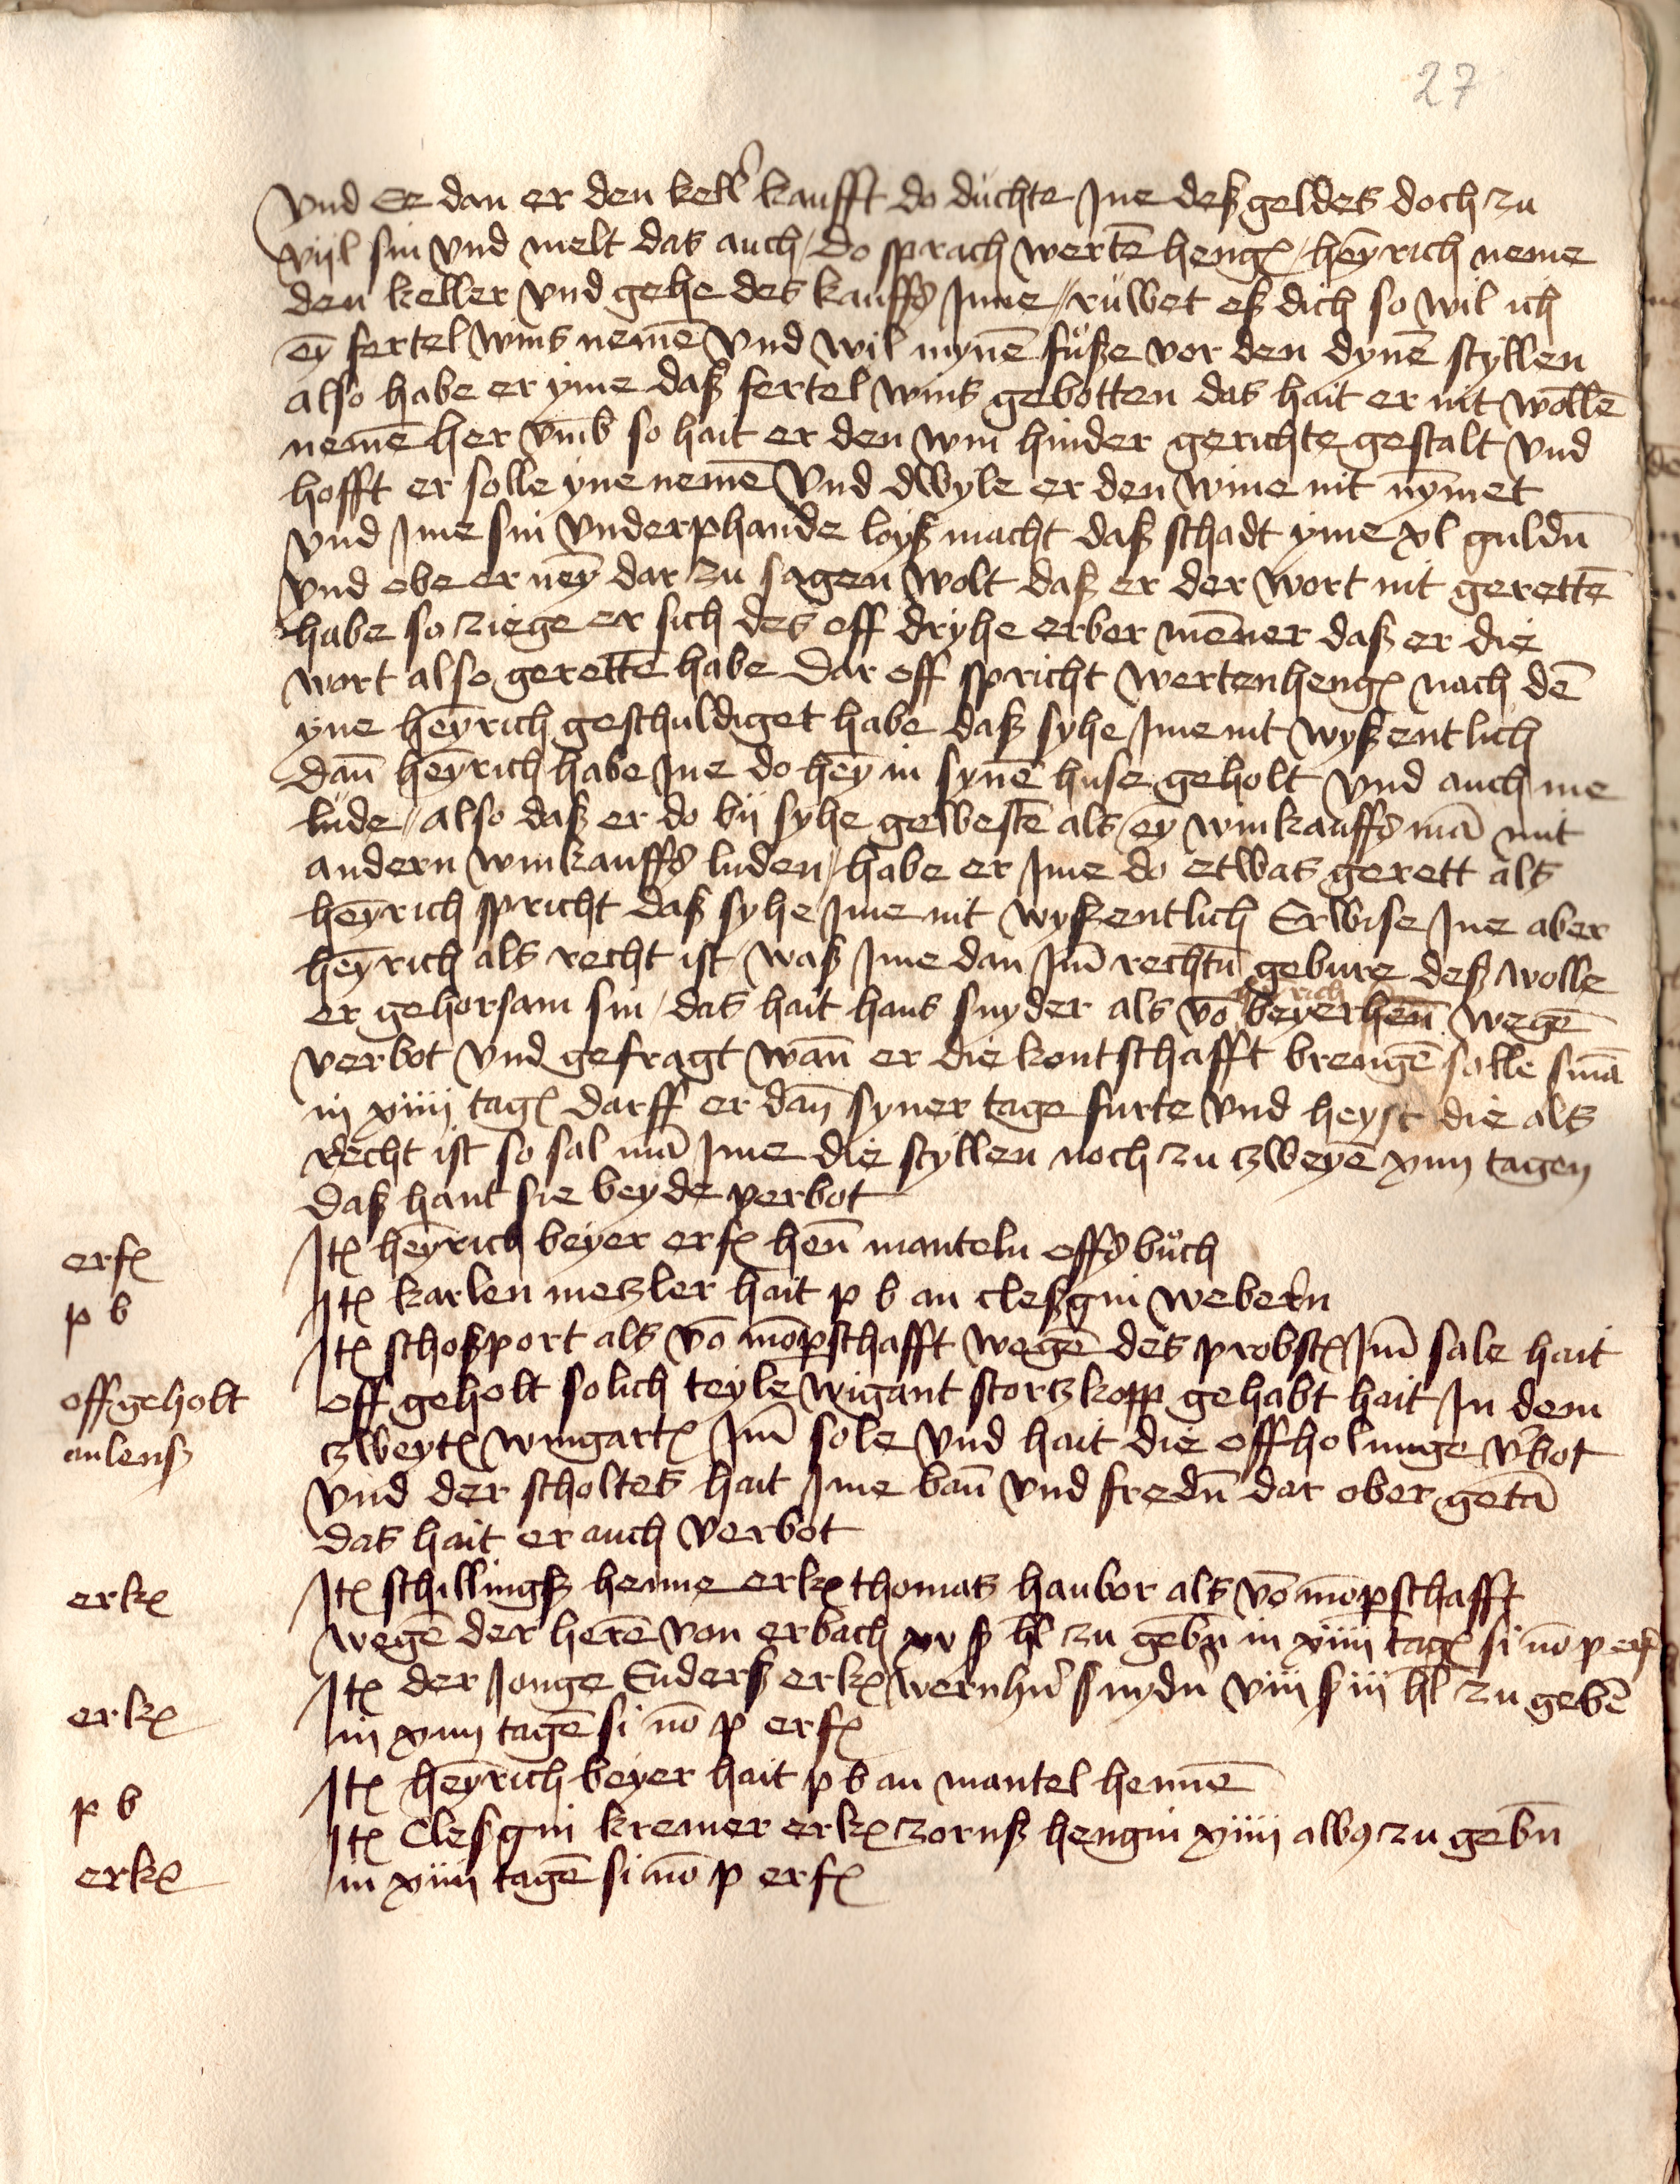 27
vnd Ee dan er den kell' kaufft do duchte Jne deß geldes doch zu
vijl sin vnd melt das auch / do sprach wertē heng~ / heȳrich neme
den keller vnd gehe des kauffs Jnne // ruwet eß dich so wil ich
eȳ fertel wins nemē vnd wil mynē fuße vor den dynē styllen
also habe er yme daß fertel wins gebotten das hait er nit wollē
nemē her vmb so hait er den win hinder gerichte gestalt vnd
hofft er solle yne nemē vnd dwyle er den wine nit nȳmet
vnd Jme sin vnderphande loyß macht daß schadt yme xl guldn̄
vnd obe er neȳ dar zu sagen wolt daß er der wort nit gerettē
habe so ziege er sich des off dryhe erber mēner daß er die
wort also gerettē habe Dar off spricht wertenheng~ nach dē
yne heȳrich geschuldiget habe daß syhe Jme nit wyßentlich
dan̄ heȳrich habe Jne do heȳ in synē huse geholt vnd auch me
lude // also daß er do bij syhe gewestē als eȳ winkauffs mā mit
andern winkauffs luden / habe er Jme do etwas gerett als
heȳrich spricht daß syhe Jme nit wyßentlich Erwise Jne aber
heȳrich als recht ist / waß Jme dan Jm̄ rechtn̄ gebure deß wolle
er gehorsam sin / das hait hans snyder als vō beyerhen̄ wegē
verbot vnd gefragt wan̄ er die kontschafft brengē solle sn̄ā
in xiiij tag~ darff er dan̄ syner tage furte vnd heyst die als
recht ist so sal mā Jme die styllen noch zu zweyē xiiij tagen
daß hant sie beyde verbot
erf~ Jt~ heȳrich beyer erf~ hen̄ manteln offs buch
p b Jt~ karlen metzler hait p b an cleßgin webern
Jt~ schoßport als vō mōpschafft wegē des probst~ Jm̄ sale hait
offgeholt off geholt solich teyle wigant stortzkopp gehabt hait Jn dem
anlenß zweyt~ wingart~ Jm̄ sole vnd hait die offholunge v'bot
vnd der scholtes hait Jme ban̄ vnd fredn̄ dar ober getā
das hait er auch verbot
erk~ Jt~ schillingß henne erk~ thomas hanbor als vō mōpschafft
wegē der herē von erbach xv ß hl zu gebn̄ in xiiij tag~ si nō p erf
erk~ Jt~ der Jonge Enderß erk~ wernhn̄ snydn̄ viij ß iij hl zu gebē
in xiiij tagē si nō p erf~
p b Jt~ heȳrich beyer hait p b an mantel hennē
erk~ Jt~ Clesgin kremer erk~ zornß hengin xiiij albꝰ zu gebn̄
in xiiij tagē si nō p erf~